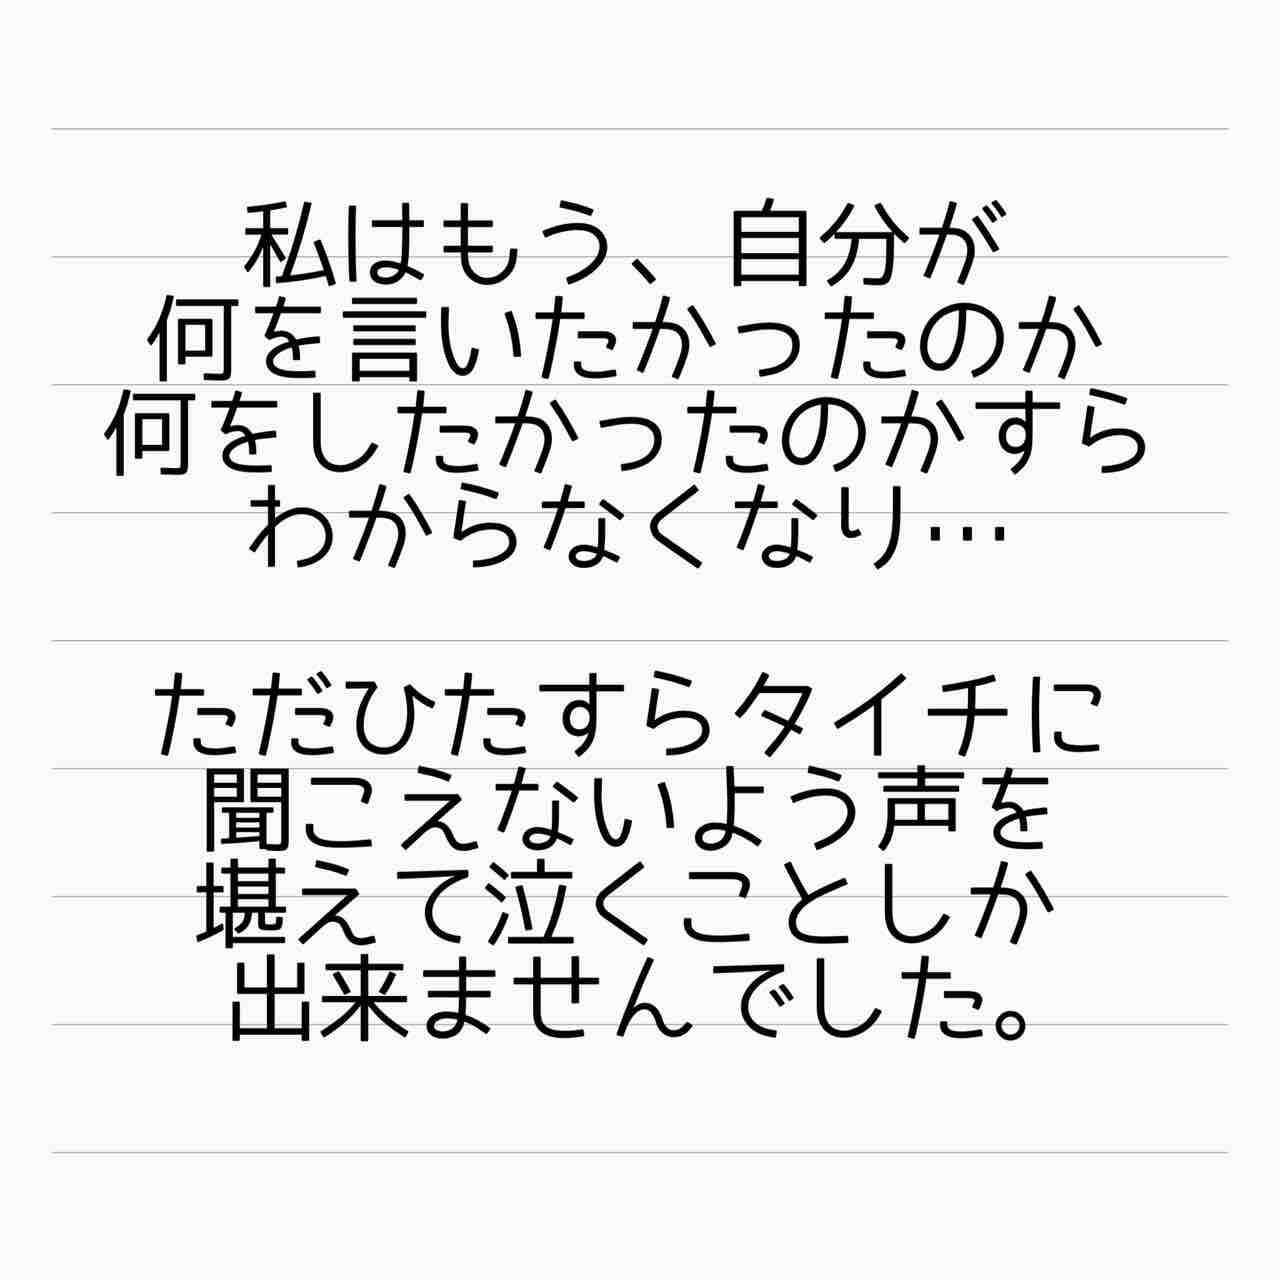 私はもう、自分が
何を言いたかったのか
何をしたかったのかすら
わからなくなり…
ただひたすらタイチに
聞こえないよう声を
堪えて泣くことしか
出来ませんでした。